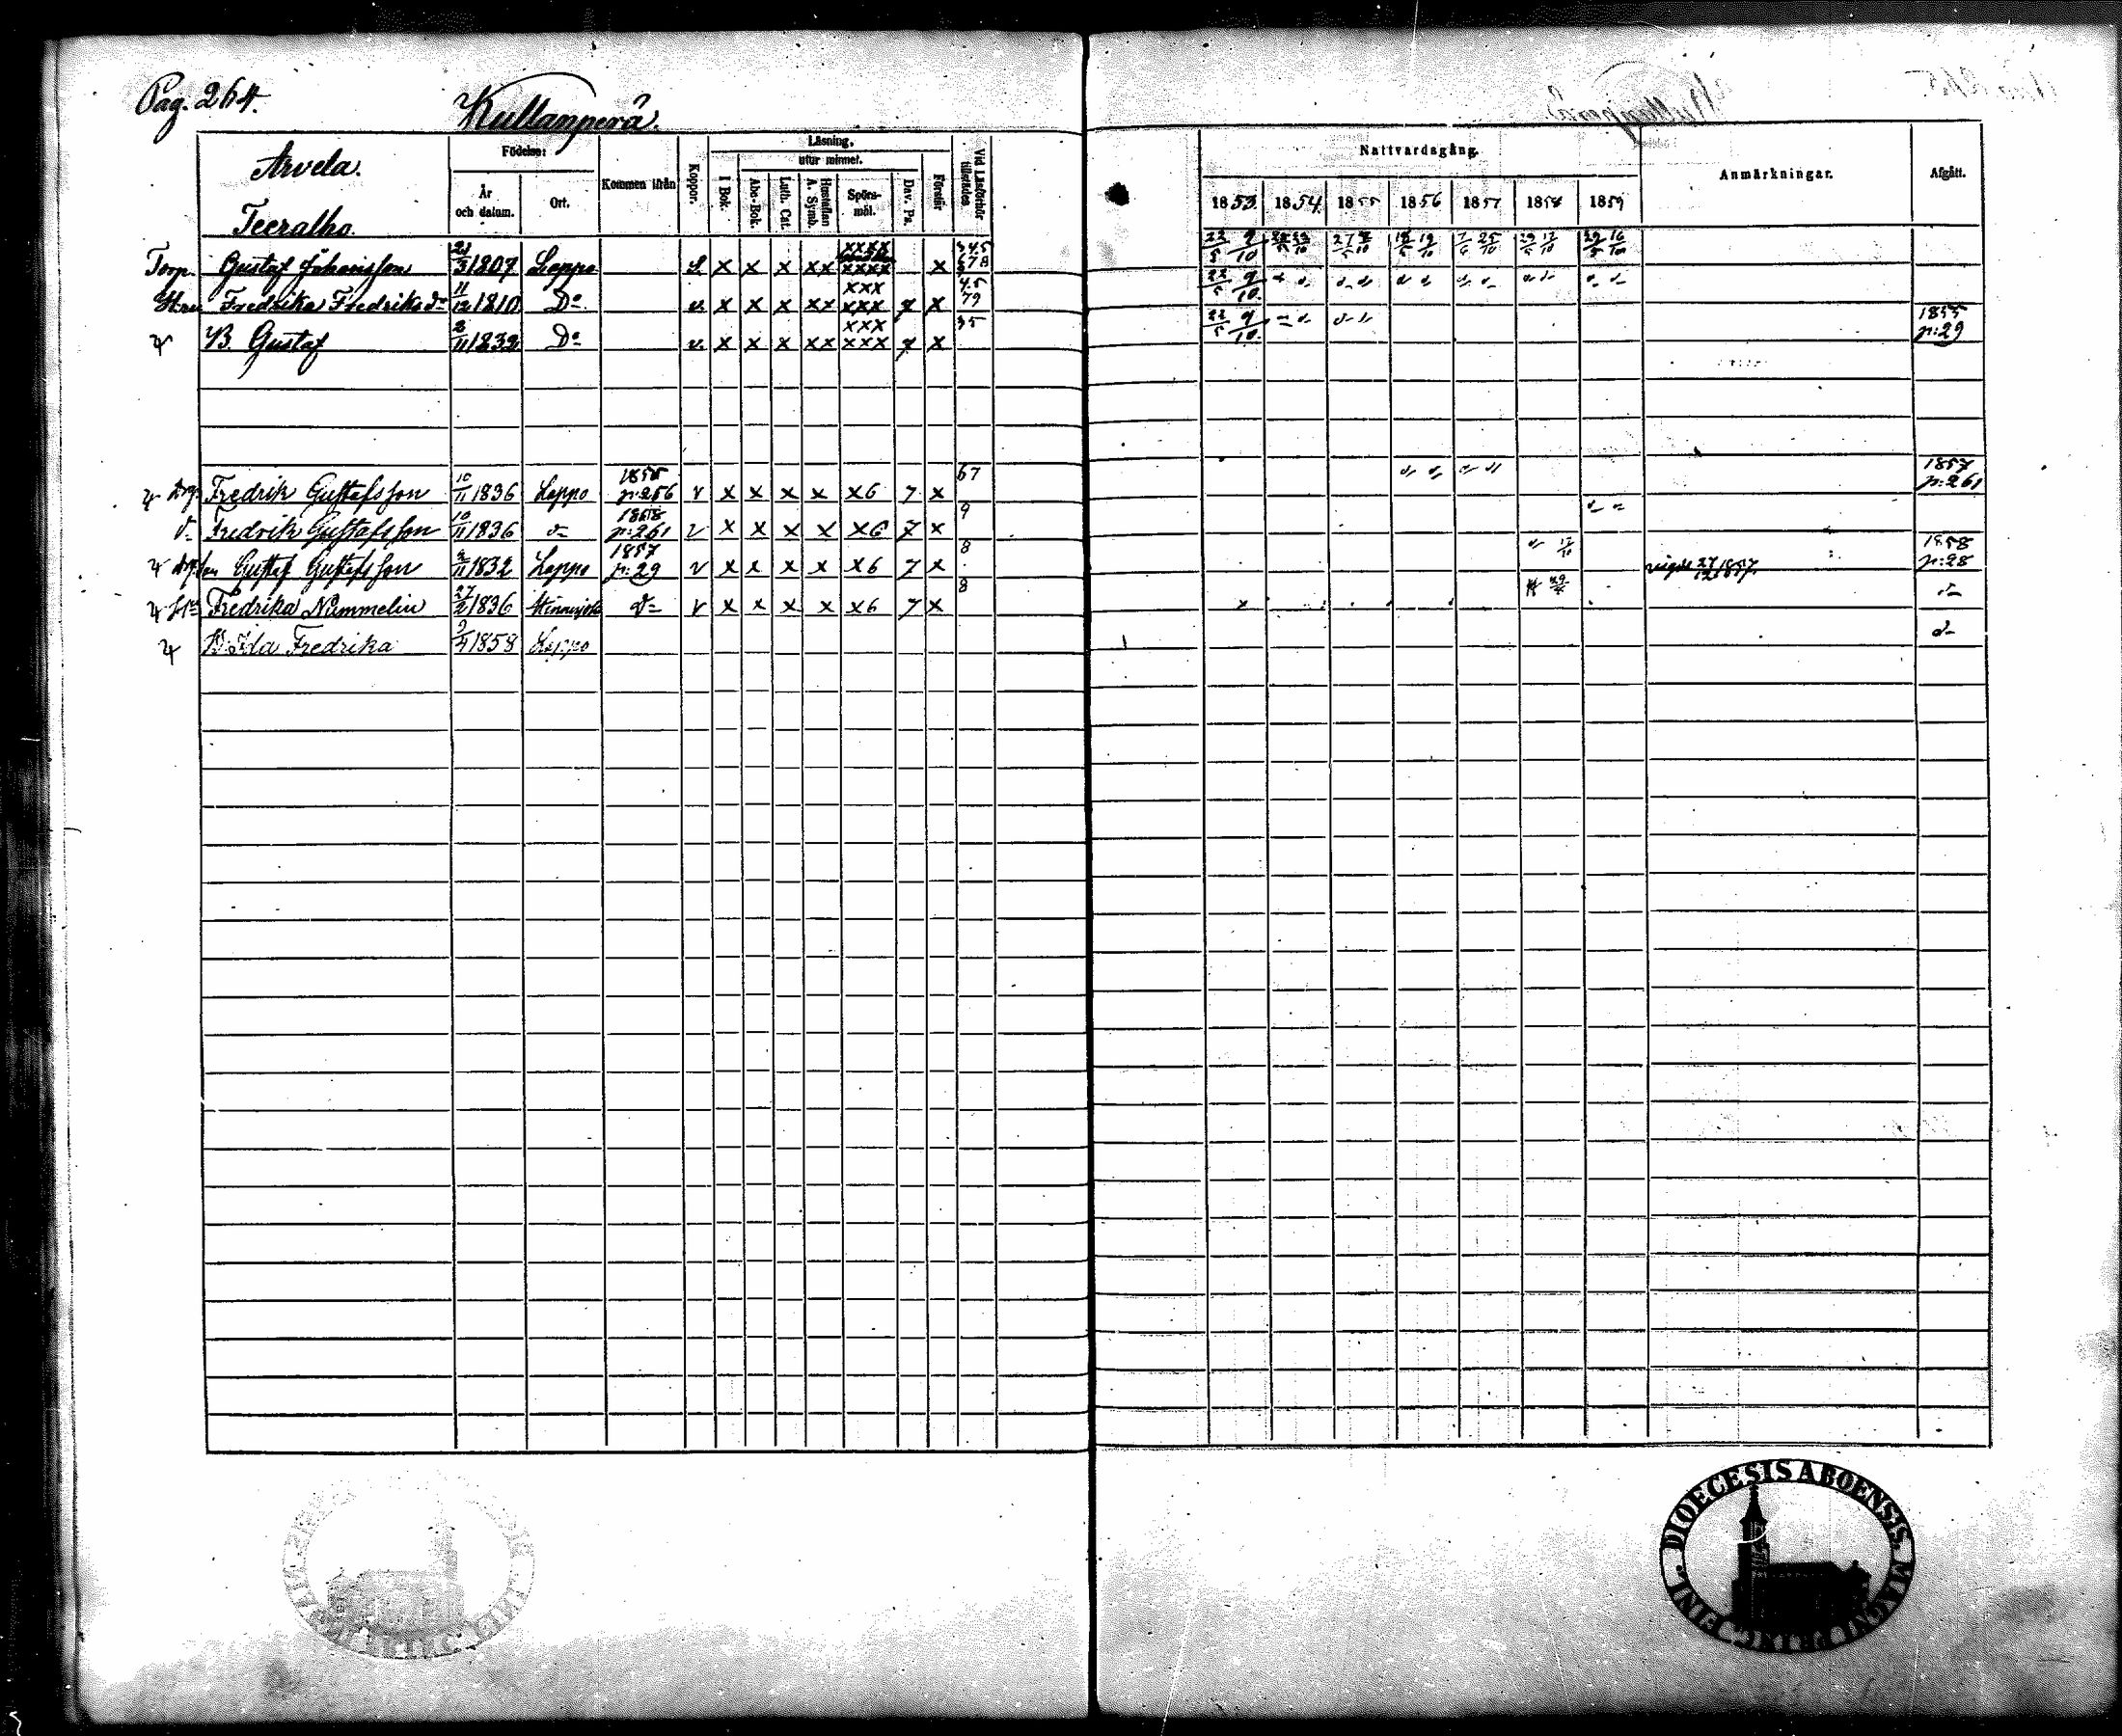 Pag. 264.
Kullanperä.
Arvela.
Födelse:
År och datum.
Ort.
Kommen ifrån
Koppor.
Läsning,
utur minnet.
I Bok.
Abc-Bok.
Luth. Cat.
Hustaflan A. Symb.
Spörsmål.
Dav. Ps.
Förstår
Vid Läsförhör tillstädes.
Nattvardsgång.
1853. 1854. 1855 1856 1857 1858 1859
Anmärkningar.
Afgått.
Teeralho.
Torp. Gustaf Johansson 21/3 1807 Loppo S. x x x xx xxxx xxxx x 345 678 22/5 9/10 27/5 18/5 19/10 7/6 25/10 29/5 17/10 29/5 16/10
Fredrika Fredriksdr 11/12 1810 Do v. x x x xx xxx xxx 7 x 45 79 22/5 9/10
B. Gustaf 2/11 1832 Do v. x x x xx xxx xxx 7 x 35 22/5 9/10 1855 p: 29
Drg. Fredrik Gustafsson 10/11 1836 Loppo p: 256 v x x x x x6 7 x 67 1857 p: 261
Fredrik Gustafsson 10/11 1836 1858 p: 261 v x x x x x6 7 x 9
Gustaf Gustafsson 2/11 1832 Loppo 1857 p: 29 v x x x x x6 7 x 8 17/10 vigde 27/12 1857. 1858 p: 28
Fredrika Nummelin 27/2 1836 v x x x x x6 7 x 8
B. Ida Fredrika 1858 Loppo
DIOECESIS ABOENSIS. MAGNI PRINC. FINL.